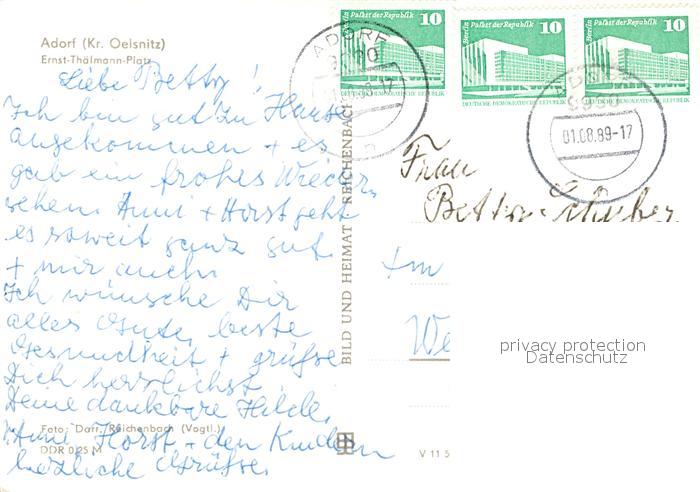 Adorf (Kr. Oelsnitz)
Ernst-Thälmann-Platz
Liebe Betty!
Ich bin gut zu Hause
angekommen + es
gab ein frohes Wieder-
sehen. Anni + Horst geht
es soweit ganz gut
+ mir auch.
Ich wünsche Dir
alles Gute, beste
Gesundheit + grüße
Dich herzlichst
Deine dankbare Hilde.
Anni Horst + den Kindern
herzliche Grüße.
Foto: Darr, Reichenbach (Vogtl.)
DDR 0,25 M
BILD UND HEIMAT REICHENBACH
V 11 5
Berlin Palast der Republik 10
DEUTSCHE DEMOKRATISCHE REPUBLIK
Berlin Palast der Republik 10
DEUTSCHE DEMOKRATISCHE REPUBLIK
Berlin Palast der Republik 10
DEUTSCHE DEMOKRATISCHE REPUBLIK
ADORF
9930
01.08.89-17
ADORF
9930
01.08.89-17
Frau
Betty
Am
We
privacy protection
Datenschutz